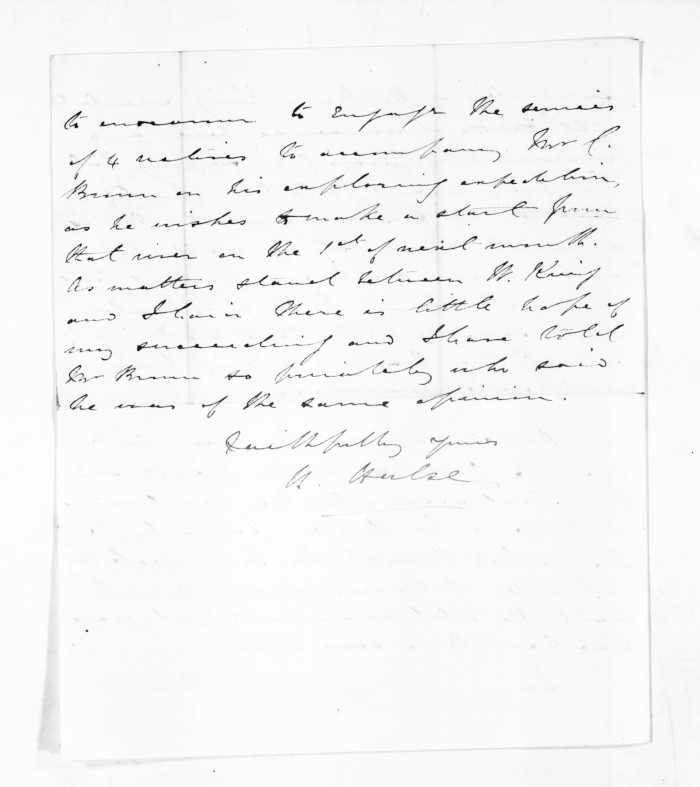 to endeavour to Engage the services
of 4 natives to accompany Mr C.
Brown on his exploring expedition,
as he wishes to make a start from
that river on the 1st of next month.
As matters stand between W. King
and I there is little hope of
my succeeding and I have told
Mr Brown so privately who said
he was of the same opinion.
Faithfully yours
H. Halse